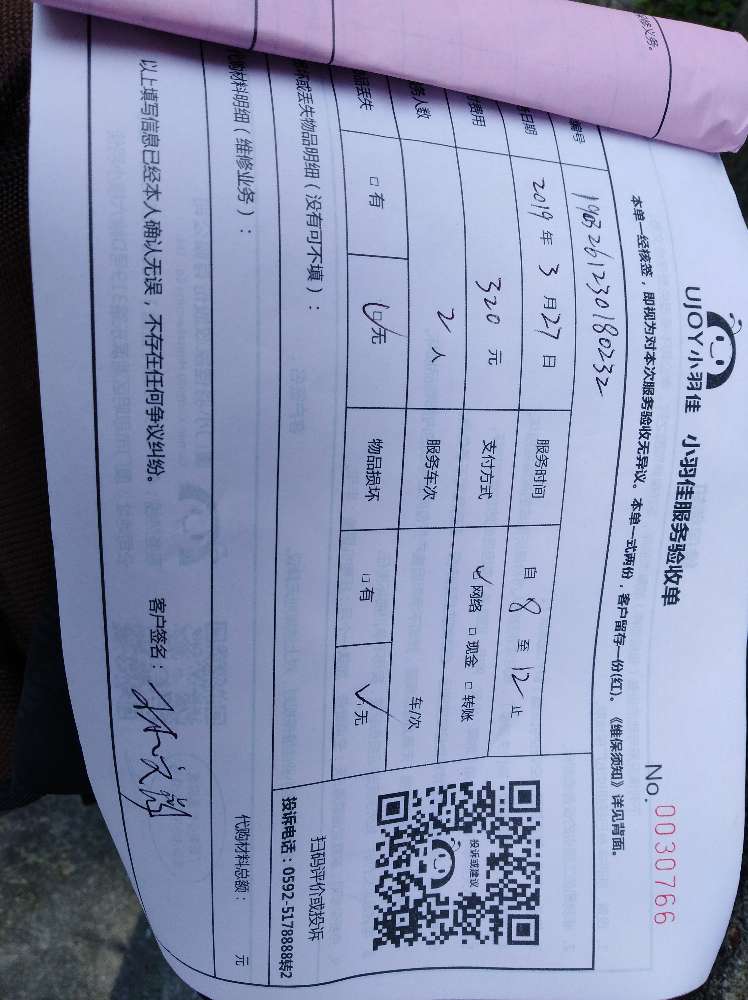 UJOY小羽佳 小羽佳服务验收单
No. 0030766
本单一经核签，即视为对本次服务验收无异议。本单一式两份，客户留存一份(红)。《维保须知》详见背面。
编号 1903261230180232
日期 2019 年 3 月 27 日 服务时间 自 8 至 12 止
费用 320 元 支付方式 ☑网络 □现金 □转账
人数 2 人 服务车次 车/次
丢失 □有 ☑无 物品损坏 □有 ☑无
坏或丢失物品明细（没有可不填）：
购材料明细（维修业务）：
代购材料总额： 元
以上填写信息已经本人确认无误，不存在任何争议纠纷。 客户签名：
投诉或建议
扫码评价或投诉
投诉电话：0592-5178888转2
修义务。